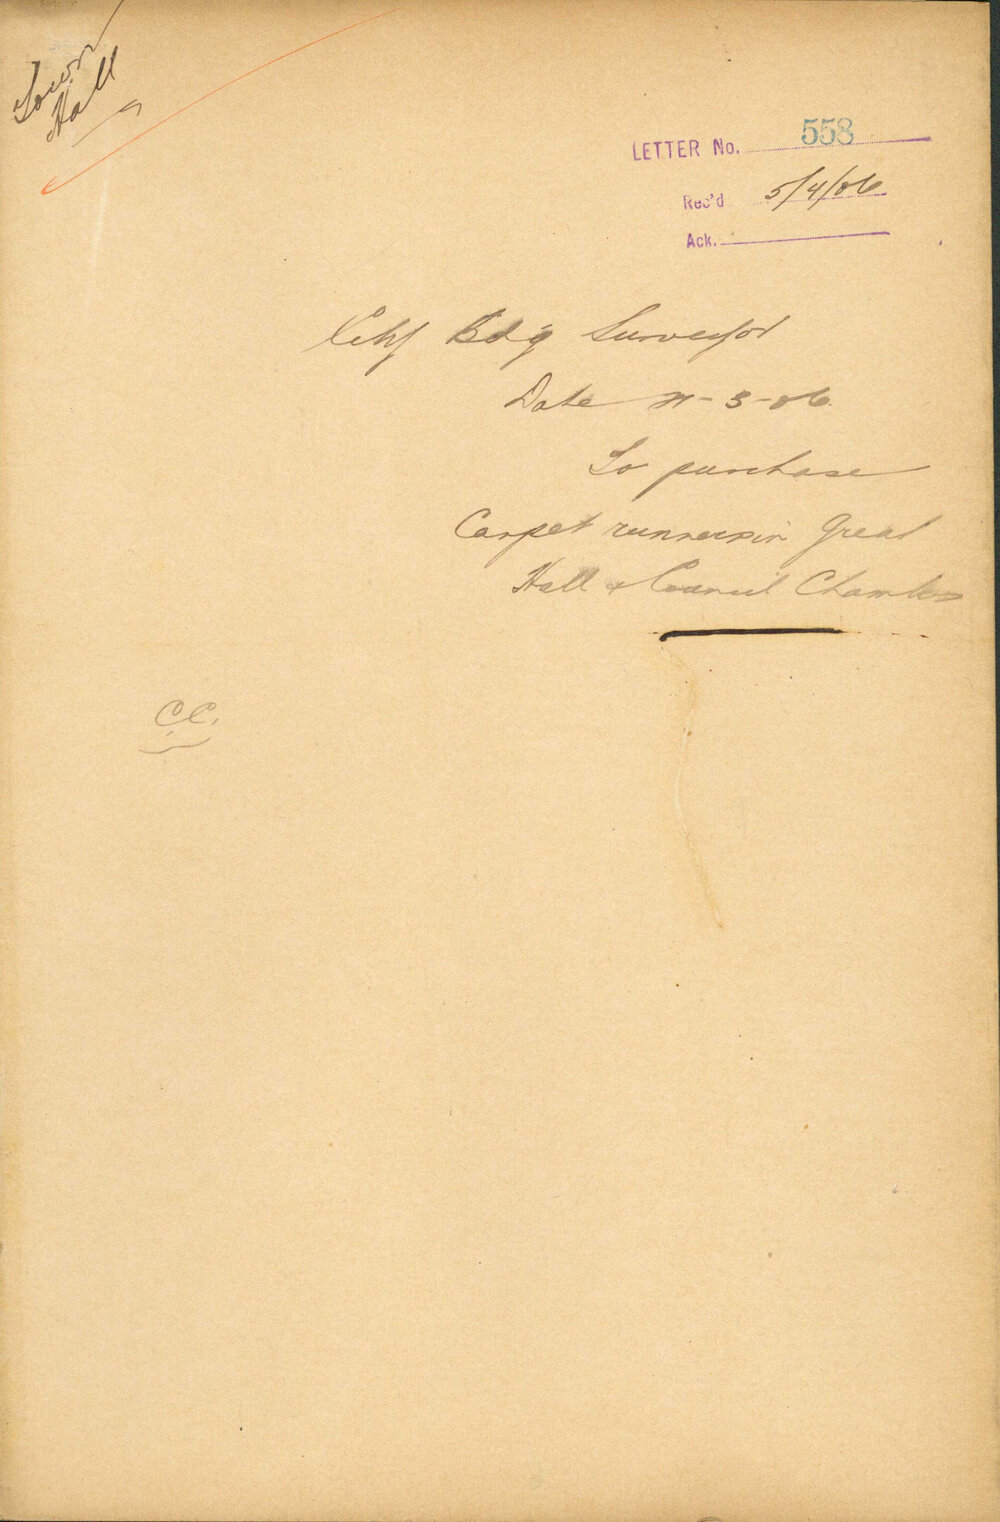 Town
Hall
LETTER No. 558
Rec'd 5/4/06
Ack.
City Bdg Surveyor
Date -3-06
To purchase
Carpet runners in Great
Hall & Council Chamber
C.C.